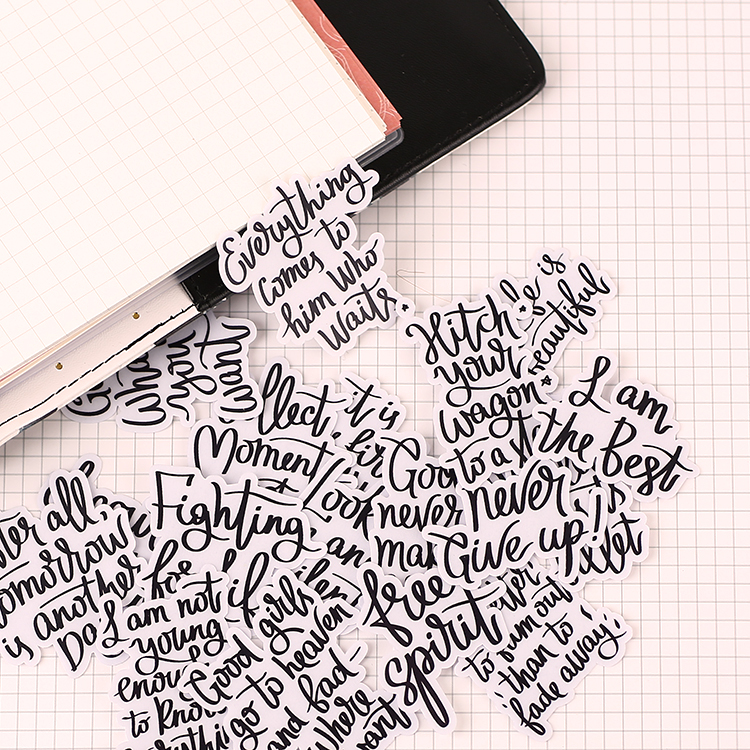 Everything
comes to
him Who
Waits
Hitch
your
wagon
to a
is
beautiful
I am
the Best
never
Give up!
llect
Moment
it is
Look
an
Goo
never
ma
Fighting
for
if
ter all
tomorrow
is another
Da
I am not
young
enou
to know
Good girls
go to heaven
and bad
where
want
free
spirit
to burn out
than to
fade away
What
you
Want